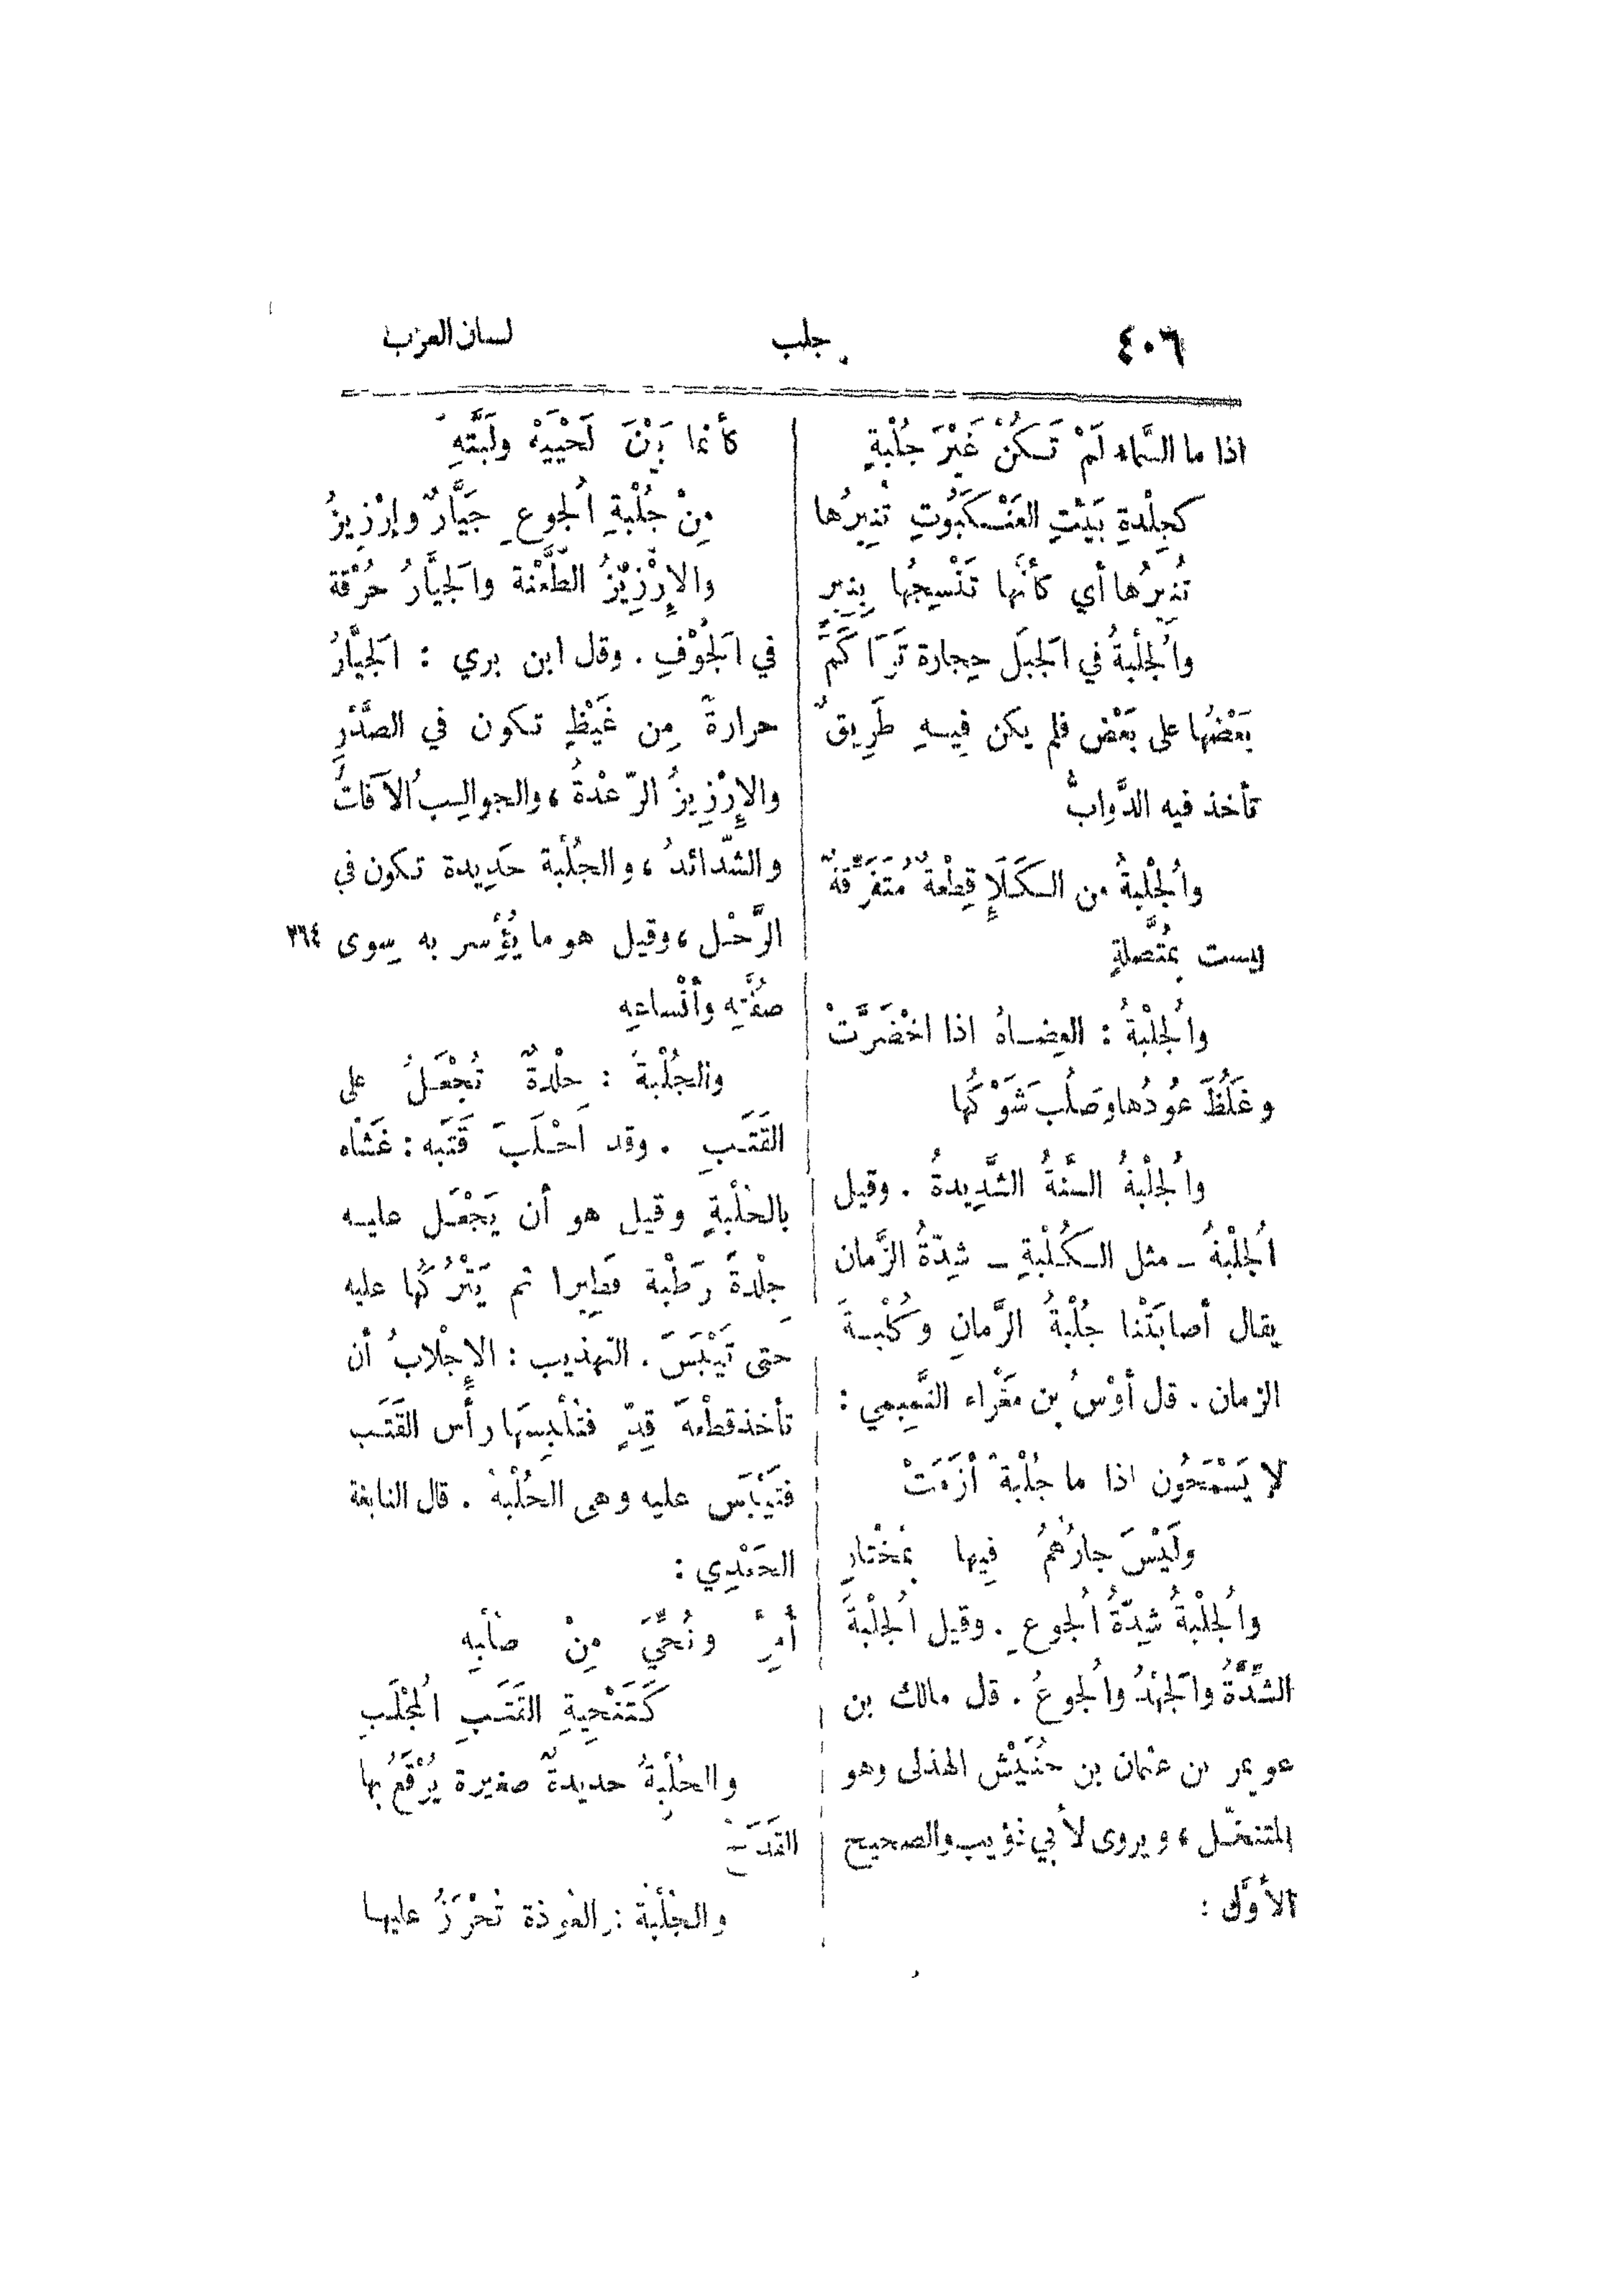 ٤٠٦
جلب
لسان العرب
اذا ما السَّماء لَمْ تَكُنْ غَيْرَ جُلْبةٍ
كجِلْدةِ بَيْتِ العَنْكَبُوتِ تُنِيرُها
تُنِيرُها أي كأنَّها تَنْسِجُها بِنِيرٍ
والجُلْبةُ في الجَبَل حِجارة تَرَاكَمَ
بَعْضُها على بَعْض فلم يكن فِيهِ طَرِيقٌ
تأخذ فيه الدَّوابُّ
والجُلْبةُ من الكَلَإِ قِطْعةٌ مُتَفَرِّقةٌ
ليست بمُتَّصلةٍ
والجُلْبةُ : العِضاهُ اذا اخْضَرَّتْ
وغَلُظَ عُودُها وصَلُب شَوْكُها
والجُلْبةُ السَّنةُ الشَّدِيدةُ . وقيل
الجُلْبةُ – مثل الكُلْبةِ – شِدّةُ الزَّمان
يقال أصابَتْنا جُلْبةُ الزَّمانِ وكُلْبةَ
الزمان . قل أوْسُ بن مَغْراء التَّمِيمي :
لا يَسْمَحُون اذا ما جُلْبةٌ أزَمَتْ
ولَيْسَ جارُهُمُ فِيها بمُخْتارِ
والجُلْبةُ شِدّةُ الجُوع . وقيل الجُلْبةُ
الشِّدّةُ والجَهْدُ والجُوعُ . قل مالك بن
عويمر بن عثمان بن حُنَيْش الهذلى وهو
المتنخّل ، ويروى لأبي ذؤيب والصحيح
الأوَّل :
كأنما بَيْنَ لَحْيَيْهِ ولَبَّتِهِ
مِنْ جُلْبةِ الجُوعِ جَيَّارٌ وإرْزِيزُ
والإرْزِيْزُ الطَّعْنة والجَيَّارُ حُرْقة
في الجَوْفِ . وقل ابن بري : الجَيَّارُ
حرارةٌ مِن غَيْظٍ تكون في الصَّدْرِ
والإِرْزِيزُ الرّعْدةُ ، والجوالِبُ الآفاتُ
والشّدائدُ ، والجُلْبة حَدِيدة تكون في
الرَّحْل ، وقيل هو ما يُؤْسر به سِوى ٢٦٤
صُفَّتِه وأنْساعِه
والجُلْبةُ : جِلْدةٌ تُجْعَلُ على
القَتَبِ . وقد أَجْلَبَ قَتَبه : غَشّاه
بالجُلْبةِ وقيل هو أن يَجْعَل عليه
جِلْدةً رَطْبة فَطِيرا ثم يَتْرُكُها عليه
حَتى تَيْبَسَ . التهذيب : الإِجْلابُ أن
تأخذ قطْعةَ قِدٍّ فتُلْبِسَها رأس القَتَب
فتَيْبَس عليه وهى الجُلْبةُ . قال النابغة
الجَعْدِي :
أُمِرَّ ونُحِّيَ مِنْ صُلْبِهِ
كَتَنْحِيةِ القَتَبِ المُجْلَبِ
والجُلْبةُ حديدةٌ صغيرة يُرْقَعُ بها
القَدَحُ
والجُلْبةُ : العُوذة تُخْرَزُ عليها